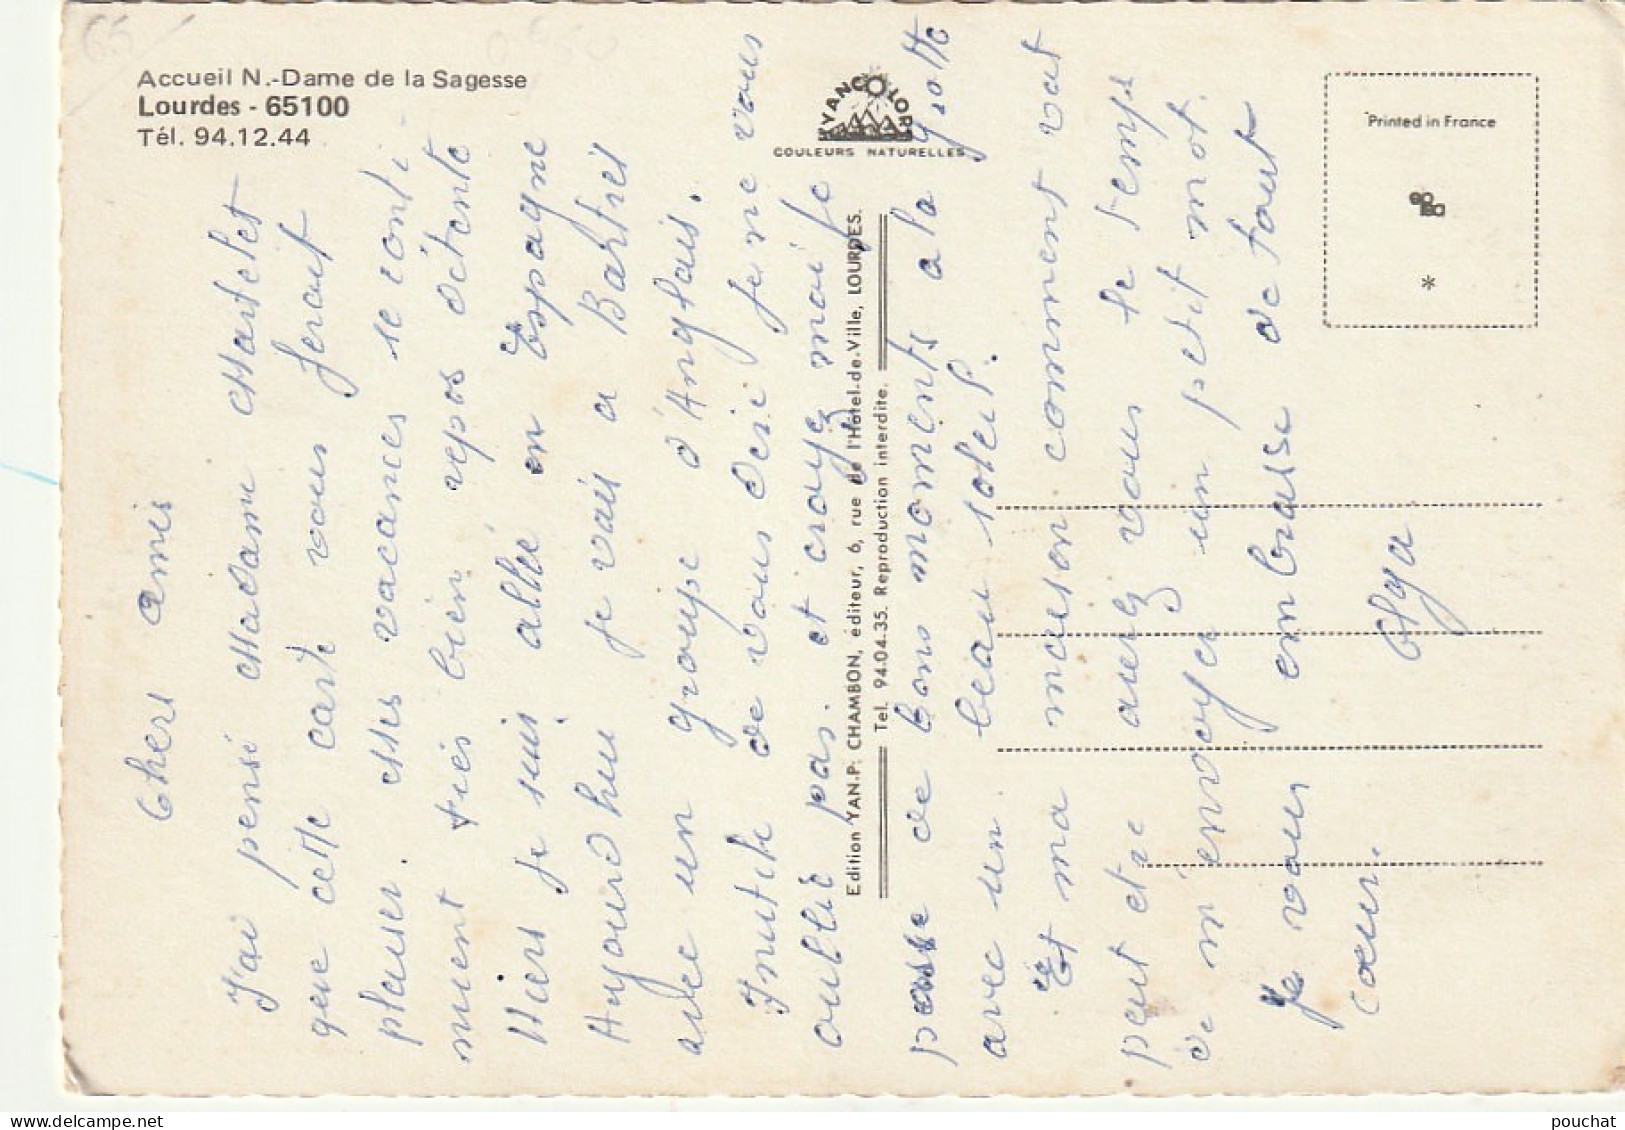 Accueil N.-Dame de la Sagesse
Lourdes - 65100
Tél. 94.12.44
YANCOLOR
COULEURS NATURELLES
Printed in France
*
Edition YAN.P. CHAMBON, éditeur, 6, rue de l'Hôtel-de-Ville, LOURDES.
Tel. 94.04.35. Reproduction interdite.
Chers amis
J'ai pensé Madame
que cette carte vous ferait
plaiser. Mes vacances se conti-
nuent très bien repos détente
Hiers je suis allée en Espagne
Auyourd'hui je vais a Bartres
avec un groupe d'Anglais.
Inutile de vous dire je ne vous
oublie pas. et croyez moi je
passe de bons moments a la grotte
avec un beau soleil.
Et ma maison comment vat
peut etre aurez vous le temps
de m'envoyer un petit mot.
Je vous embrasse de tout
cœur.